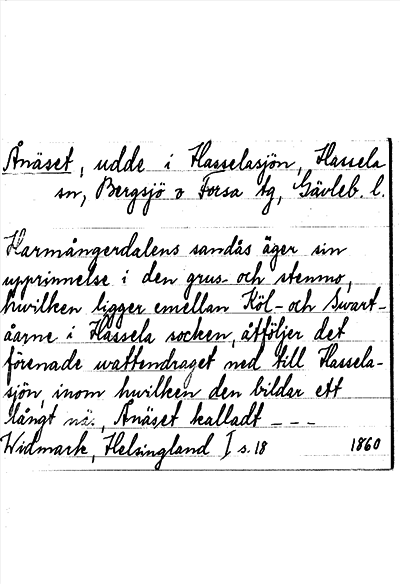 Ånäset, udde i Hasselasjön, Hassela
sn, Bergsjö o Forsa tg, Gävleb. l.
Harmångerdalens sandås äger sin
upprinnelse i den grus- och stenmo,
hvilken ligger emellan Köl- och Svart-
åarne i Hassela socken, åtföljer det
förenade wattendraget ned till Hassela-
sjön, inom hwilken den bildar ett
långt näs, Ånäset kalladt - - -
Widmark, Helsingland I s. 18 1860